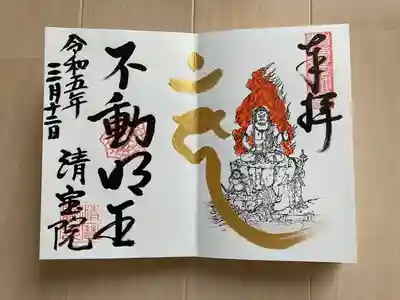 奉拝
不動明王
令和五年
三月十二日
清宝院